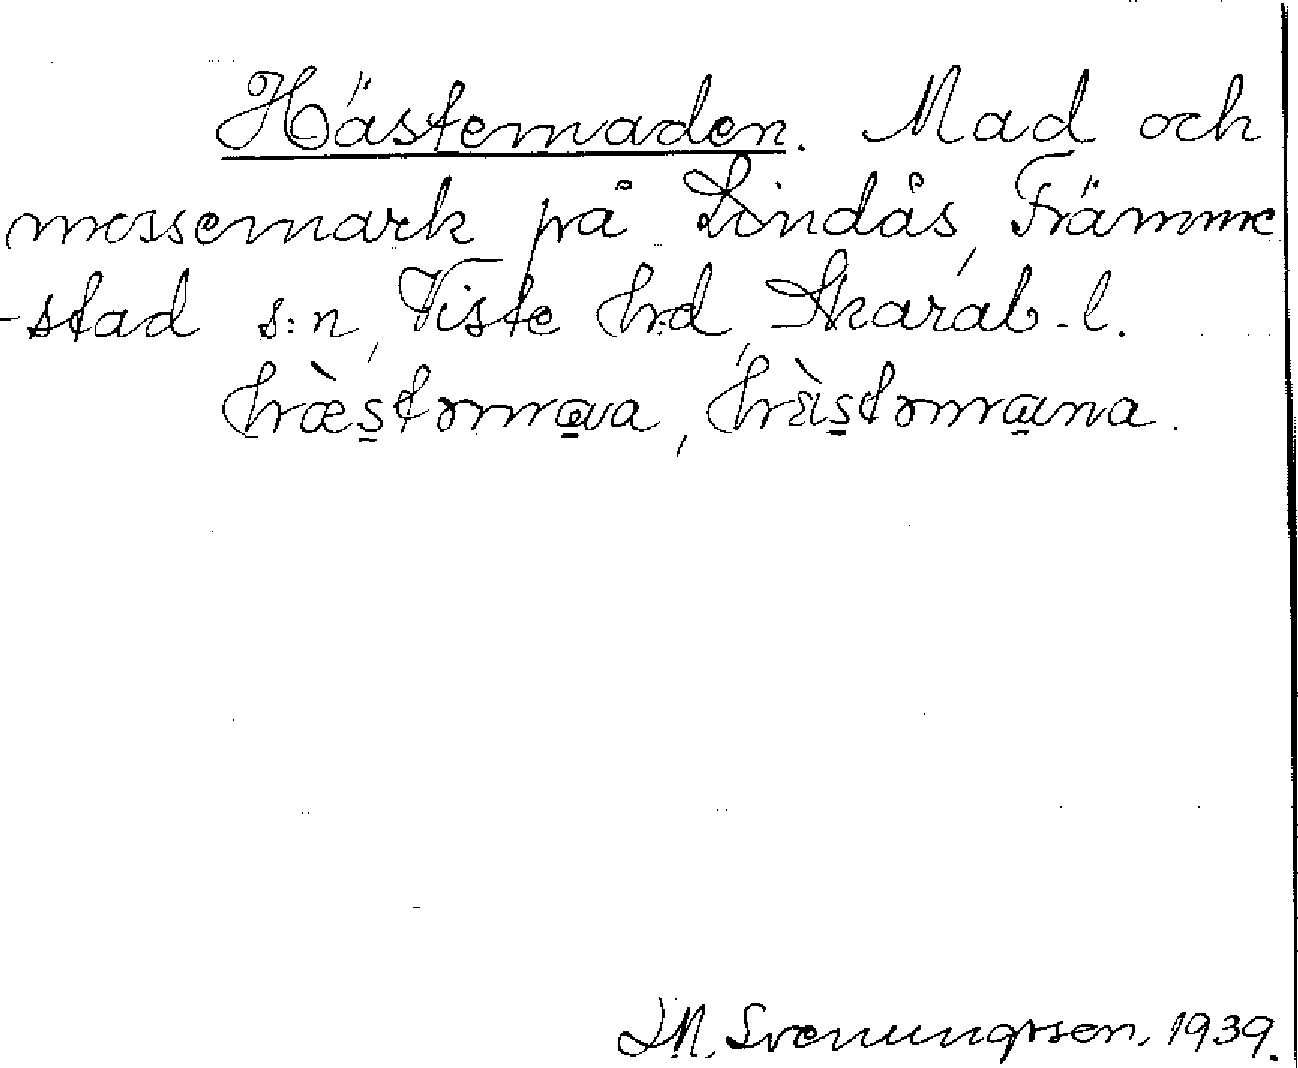 Hästemaden. Mad och
mossemark på Lindås, Främme
-stad s:n, Viste hd, Skarab. l.
hæ̀stəmava, hæ̀stəmana.
J.M. Svenungsson, 1939.